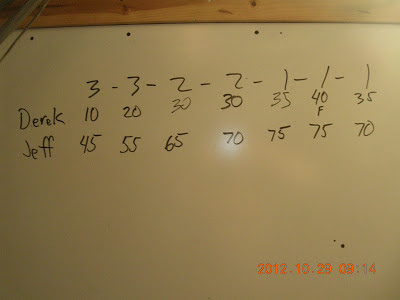 3 - 3 - 2 - 2 - 1 - 1 - 1
Derek 10 20 30 30 35 40 35
F
Jeff 45 55 65 70 75 75 70
2012.10.23 09:14